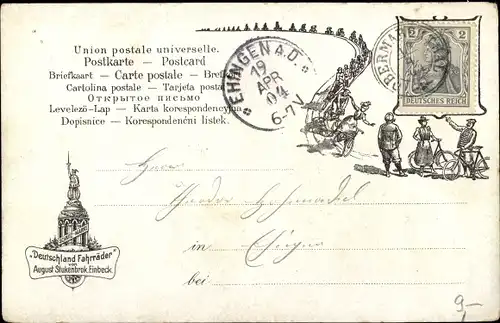 Union postale universelle.
Postkarte — Postcard
Briefkaart — Carte postale — Bre
Cartolina postale — Tarjeta posta
Открытое письмо
Levelező-Lap — Karta korespondencyjna
Dopisnice — Korespondenční lístek.
EHINGEN A.D.
19
APR
04
6-7 N
OBERMA
2 2
DEUTSCHES REICH
Herrn
Theodor
in Ehingen
bei
"Deutschland Fahrräder"
von
August Stukenbrok, Einbeck.
9,-